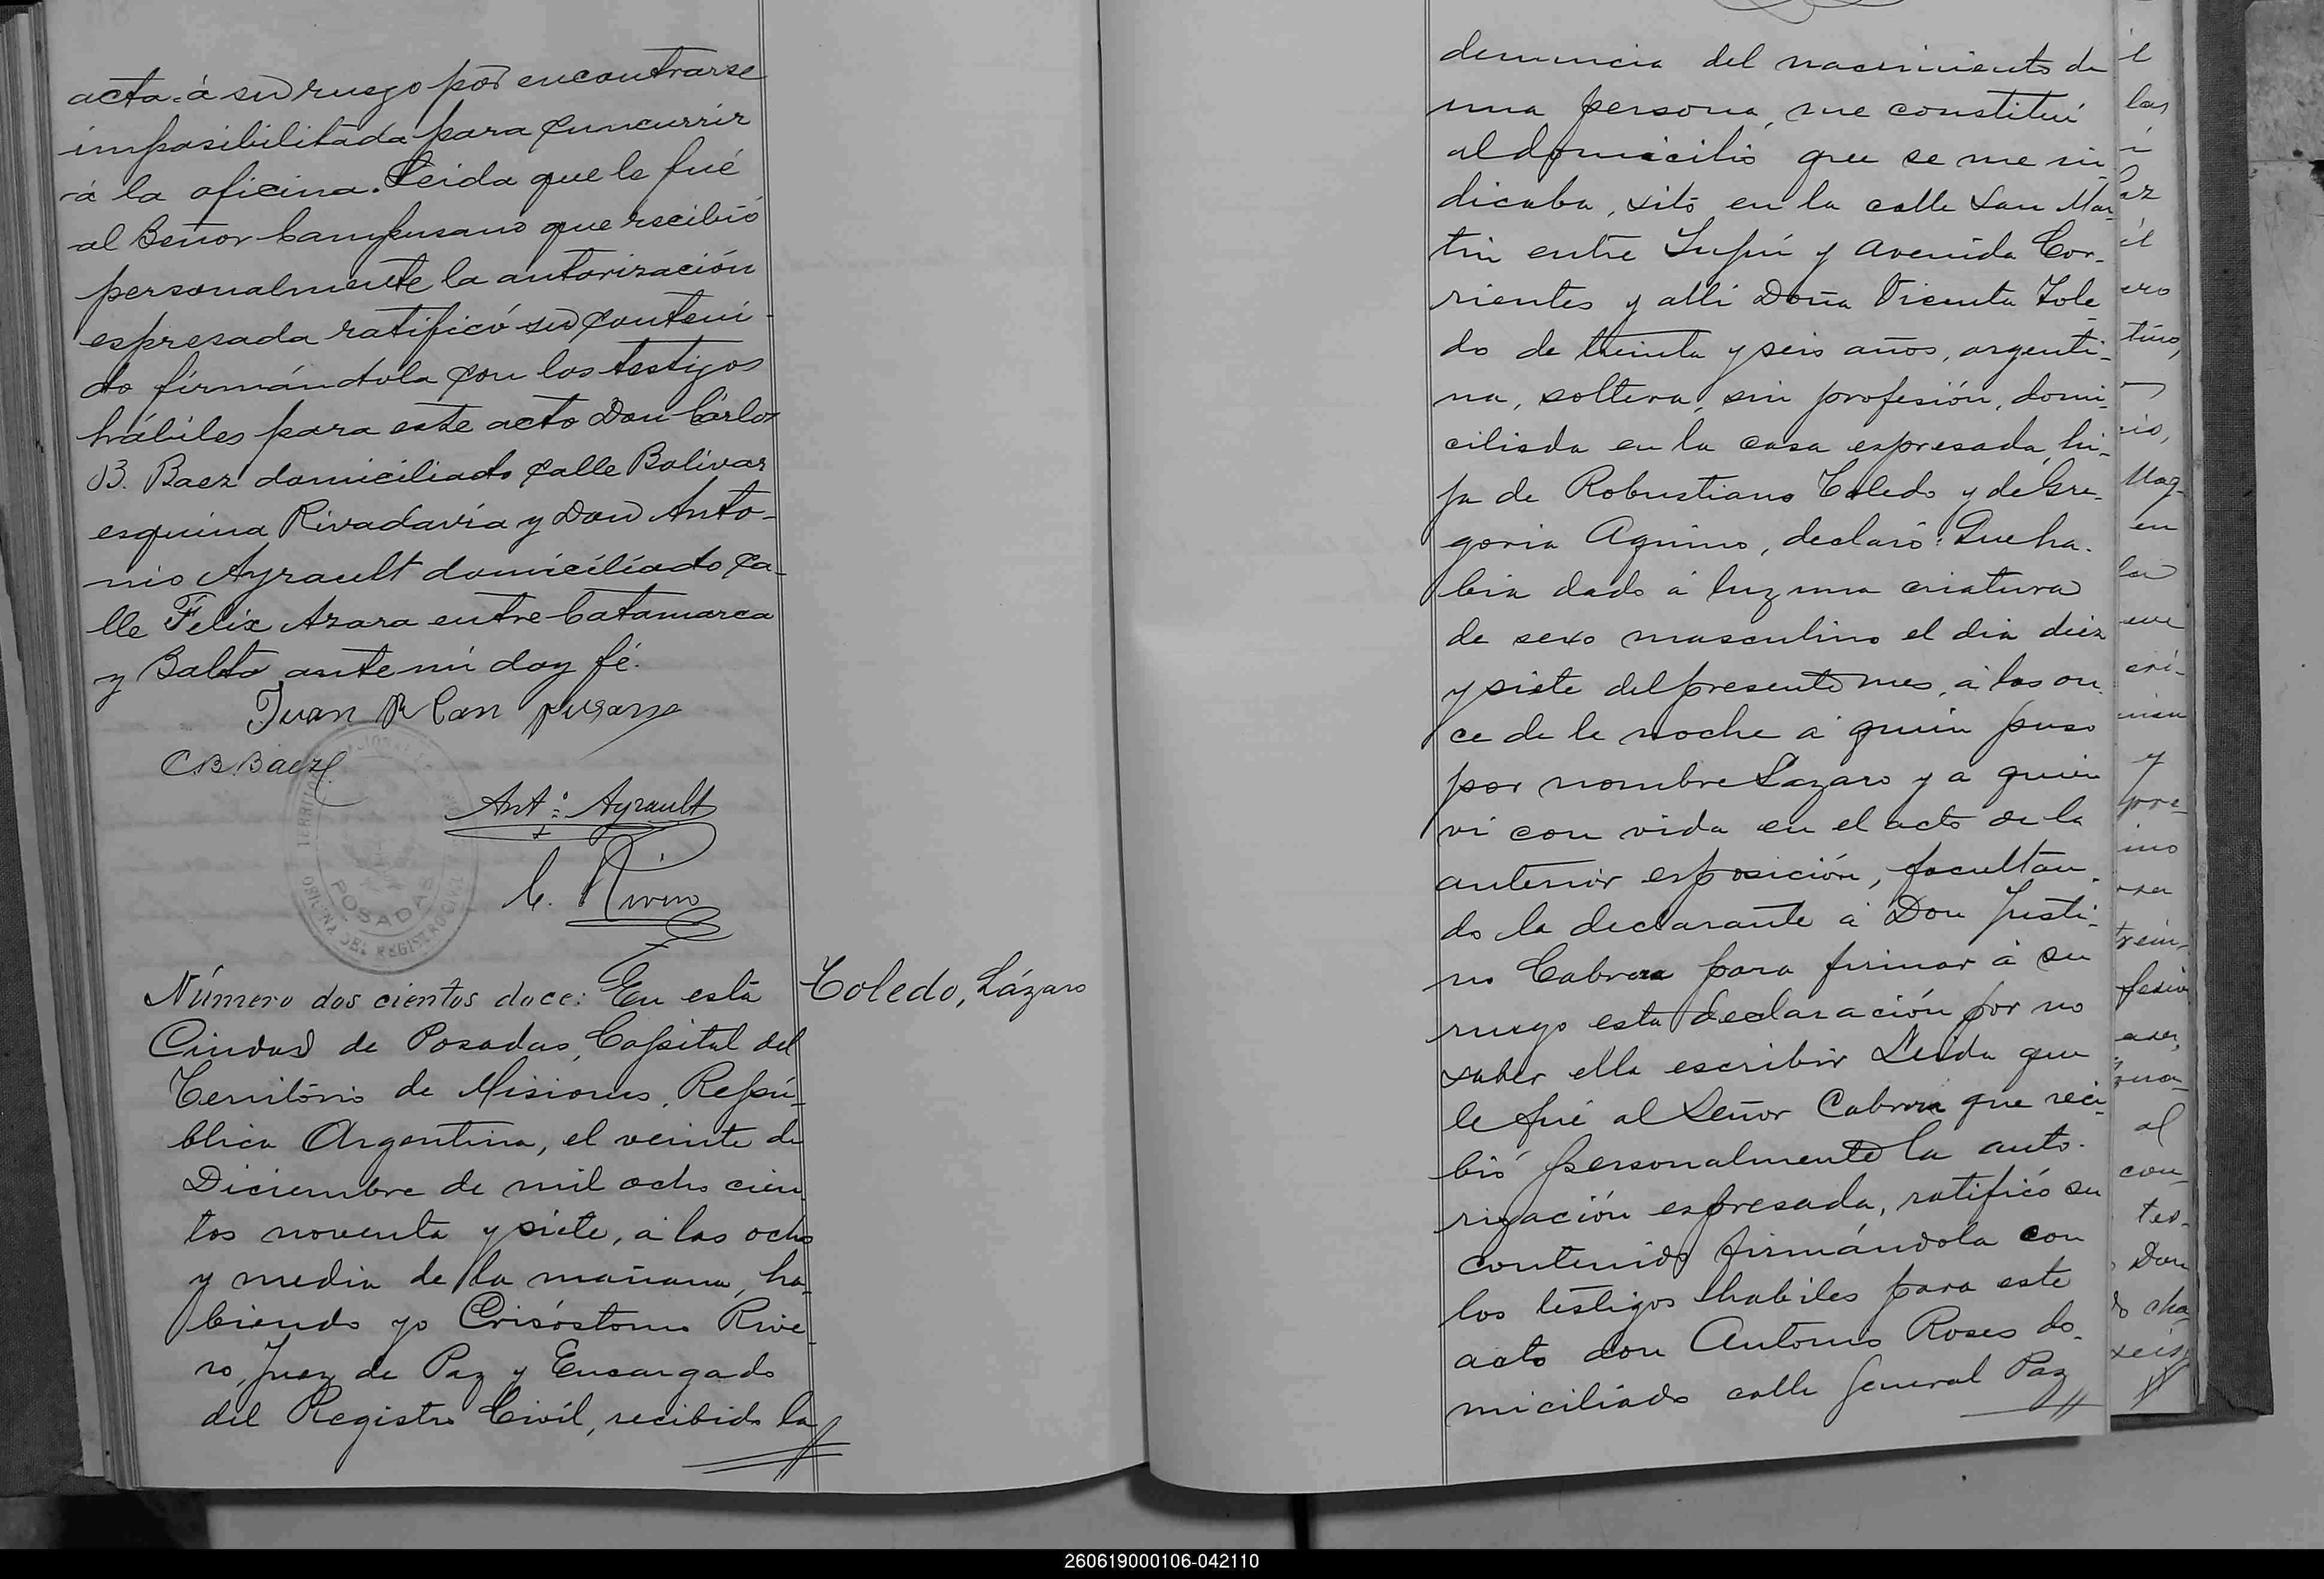 acta á su ruego por encontrarse
imposibilitada para cuncurrir
á la oficina. Leida que le fué
al Señor Campusano que recibió
personalmente la autorización
espresada ratificó su conteni-
do firmándola con los testigos
hábiles para este acto Don Cárlos
B. Baez domiciliado calle Bolívar
esquina Rivadavia y Don Anto-
nio Ayrault domiciliado ca-
lle Félix Azara entre Catamarca
y Salta ante mí doy fé.
Juan R Campusano
C.B. Baez
Ant.º Ayrault
C. Rivero
POSADAS
OFICINA DEL REGISTRO CIVIL
Número dos cientos doce: En esta
Ciudad de Posadas, Capital del
Território de Misiones, Repú-
blica Argentina, el veinte de
Diciembre de mil ocho cien
tos noventa y siete, á las ocho
y media de la mañana, ha-
biendo yo Crisóstomo Rive-
ro, Juez de Paz y Encargado
del Registro Civíl, recibido la
Toledo, Lázaro
denuncia del nacimiento de
una persona, me constituí
al domicilio que se me in-
dicaba, sito en la calle San Mar-
tin entre Tupú y Avenida Cor-
rientes y allí Doña Vicenta Tole-
do de treinta y seis años, argenti-
na, soltera, sin profesión, domi-
ciliada en la casa espresada, hi-
ja de Robustiano Toledo y de Gre-
goria Aquino, declaró: Que ha-
bia dado á luz una criatura
de sexo masculino el dia diez
y siete del presente mes, á las on-
ce de la noche á quien puso
por nombre Lazaro y a quien
vi con vida en el acto de la
anterior esposición, facultan-
do la declarante á Don Justi-
no Cabrera para firmar á su
ruego esta declaración por no
saber ella escribir Leida que
le fué al Señor Cabrera que reci-
bió personalmente la auto-
rización espresada, ratificó su
contenido firmándola con
los testigos habiles para este
acto don Antonio Roses do-
miciliado calle General Paz
260619000106-042110